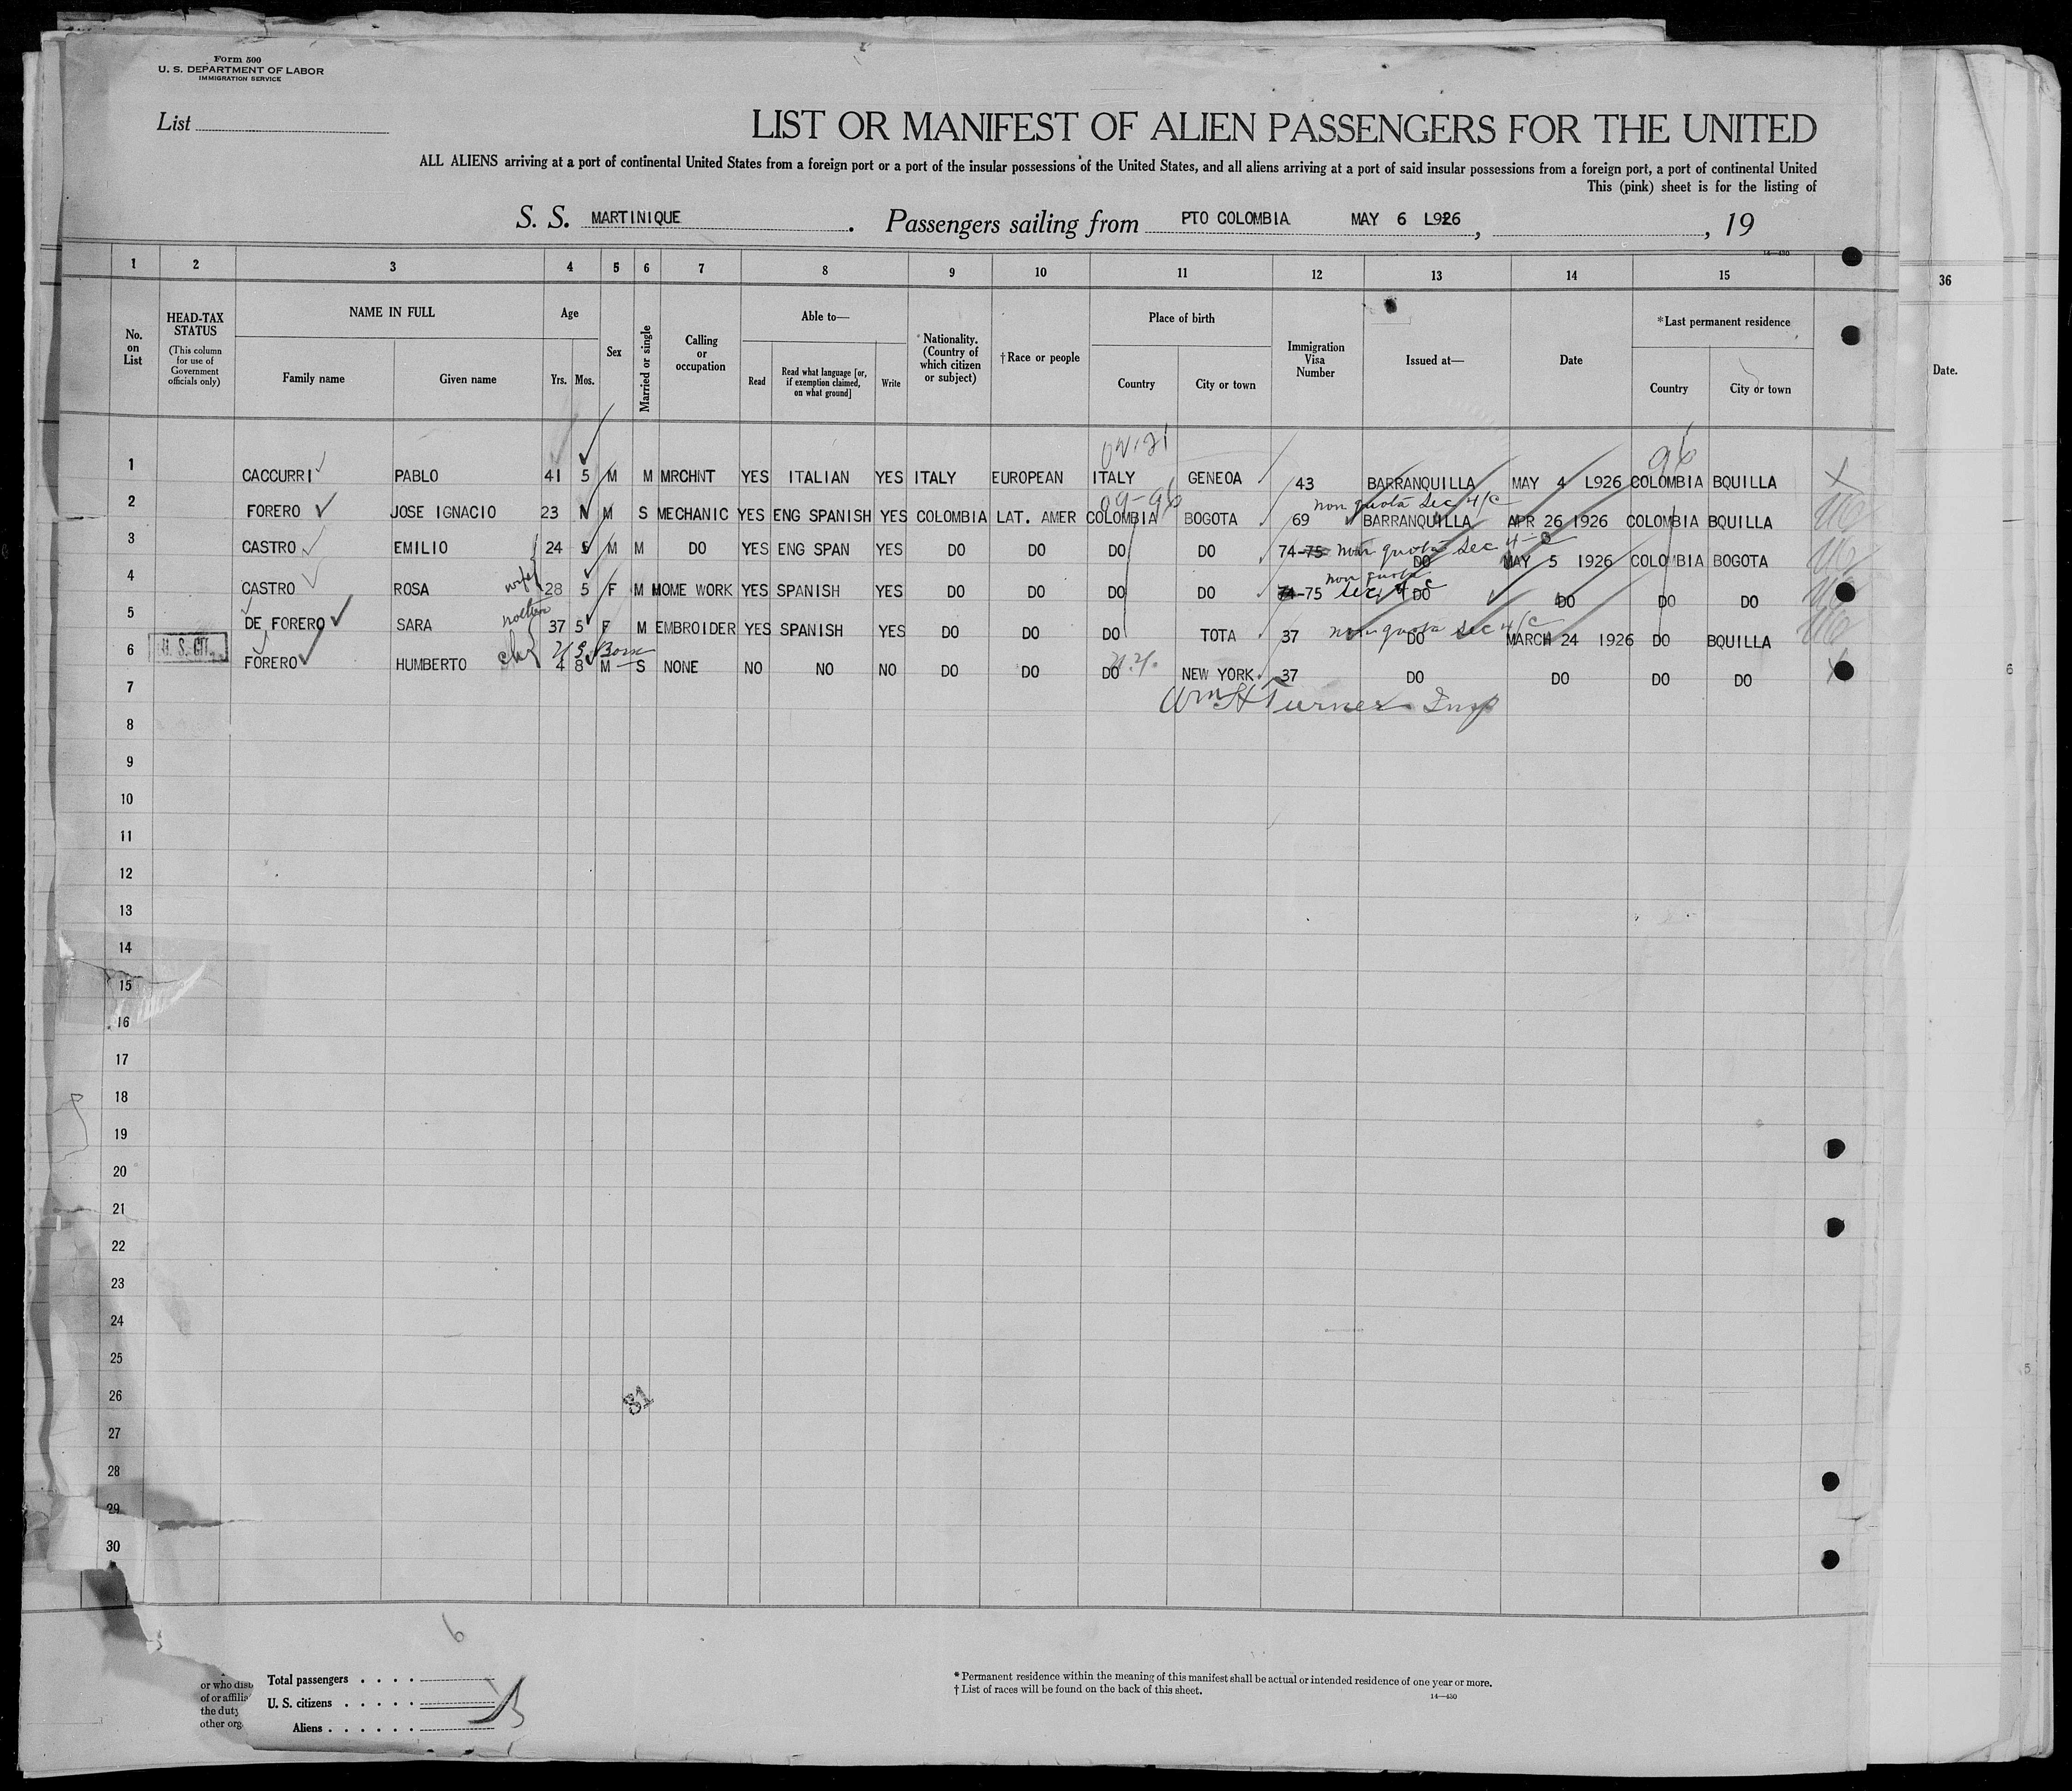 Form 500
U. S. DEPARTMENT OF LABOR
IMMIGRATION SERVICE
List
LIST OR MANIFEST OF ALIEN PASSENGERS FOR THE UNITED
ALL ALIENS arriving at a port of continental United States from a foreign port or a port of the insular possessions of the United States, and all aliens arriving at a port of said insular possessions from a foreign port, a port of continental United
This (pink) sheet is for the listing of
S. S. MARTINIQUE. Passengers sailing from PTO COLOMBIA MAY 6 L926, , 19
14—430
1 2 3 4 5 6 7 8 9 10 11 12 13 14 15 36
No. on List
HEAD-TAX STATUS
(This column for use of Government officials only)
NAME IN FULL
Family name Given name
Age
Yrs. Mos.
Sex
Married or single
Calling or occupation
Able to—
Read
Read what language [or, if exemption claimed, on what ground]
Write
Nationality. (Country of which citizen or subject)
†Race or people
Place of birth
Country City or town
Immigration Visa Number
Issued at—
Date
*Last permanent residence
Country City or town
Date.
96
1 CACCURRI PABLO 41 5 M M MRCHNT YES ITALIAN YES ITALY EUROPEAN ITALY GENEOA 43 BARRANQUILLA MAY 4 L926 COLOMBIA BQUILLA
09-96 non quota Sec 4/c
2 FORERO JOSE IGNACIO 23 M S MECHANIC YES ENG SPANISH YES COLOMBIA LAT. AMER COLOMBIA BOGOTA 69 BARRANQUILLA APR 26 1926 COLOMBIA BQUILLA
3 CASTRO EMILIO 24 5 M M DO YES ENG SPAN YES DO DO DO DO 74-75 non quota Sec 4-c DO MAY 5 1926 COLOMBIA BOGOTA
4 CASTRO ROSA wife 28 5 F M HOME WORK YES SPANISH YES DO DO DO DO 74-75 non quota sec. 4 c DO DO DO DO
5 DE FORERO SARA mother 37 5 F M EMBROIDER YES SPANISH YES DO DO DO TOTA 37 non quota Sec 4/c DO MARCH 24 1926 DO BQUILLA
U. S. CIT. U S Born
6 FORERO HUMBERTO 4 8 M S NONE NO NO NO DO DO DO N.Y. NEW YORK 37 DO DO DO DO
Wm H Turner Insp
7
8
9
10
11
12
13
14
15
16
17
18
19
20
21
22
23
24
25
26
81
27
28
29
30
6
or who
of or affilia
the duty
other org
Total passengers
U. S. citizens
Aliens
* Permanent residence within the meaning of this manifest shall be actual or intended residence of one year or more.
† List of races will be found on the back of this sheet.
14—430
6
5